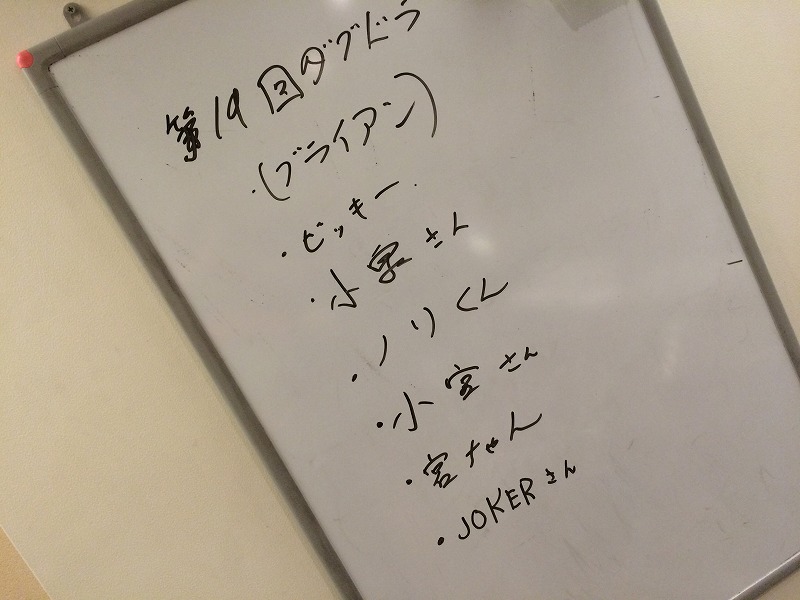 第19回ダブドラ
・(ブライアン)
・ビッキー
・小泉さん
・ノリくん
・小宮さん
・宮ちゃん
・JOKERさん